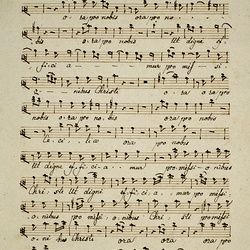 o. ra pro nobis ora pro no.
bis o. ra pro nobis Ut digni ef.
fi. ci. a mur pro mis si.
o. nibus Christi o. ra pro no.
nobis ora pro no. bis ora pro nobis
ora pro nobis
Ut digni ef. fi. ci. a. mur pro missi. o nibus
Chri. sti Ut digni ef. fi. ci. a. mur pro missi.
o. nibus pro missi. o. nibus Chri sti pro missi.
o. ni bus Christi ora ora pro